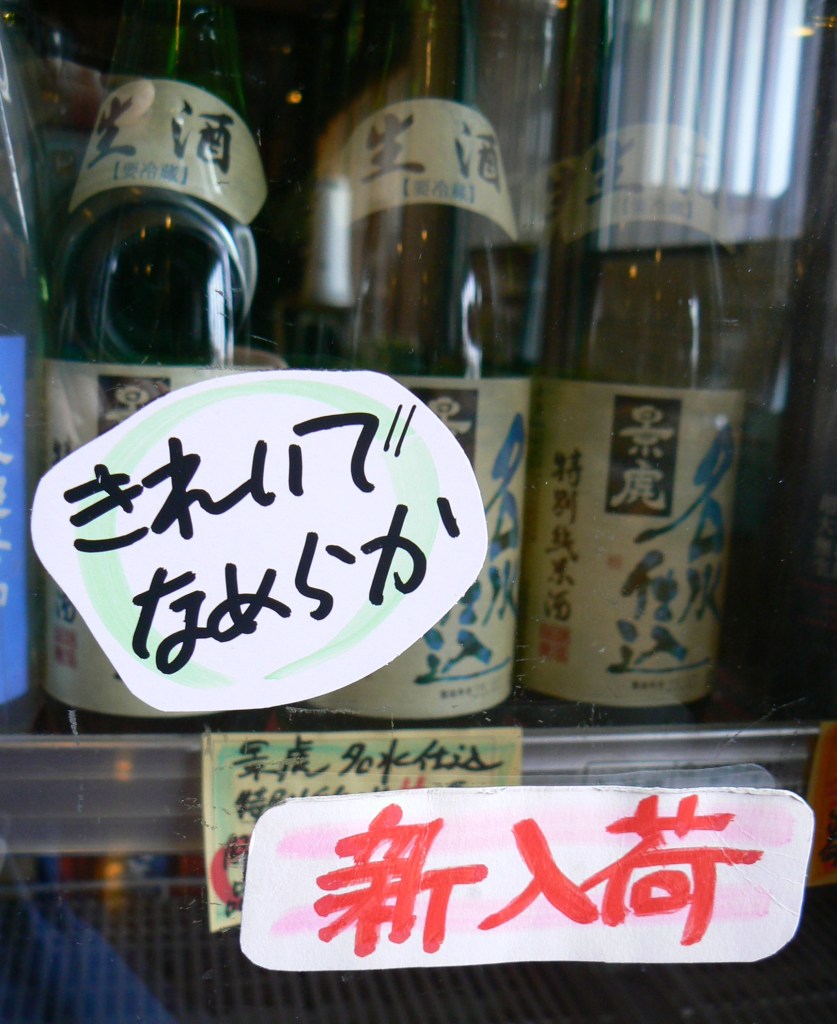 生酒
【要冷蔵】
生酒
【要冷蔵】
生酒
きれいで
なめらか
景虎
名水仕込
特別純米酒
景虎 名水仕込
新入荷